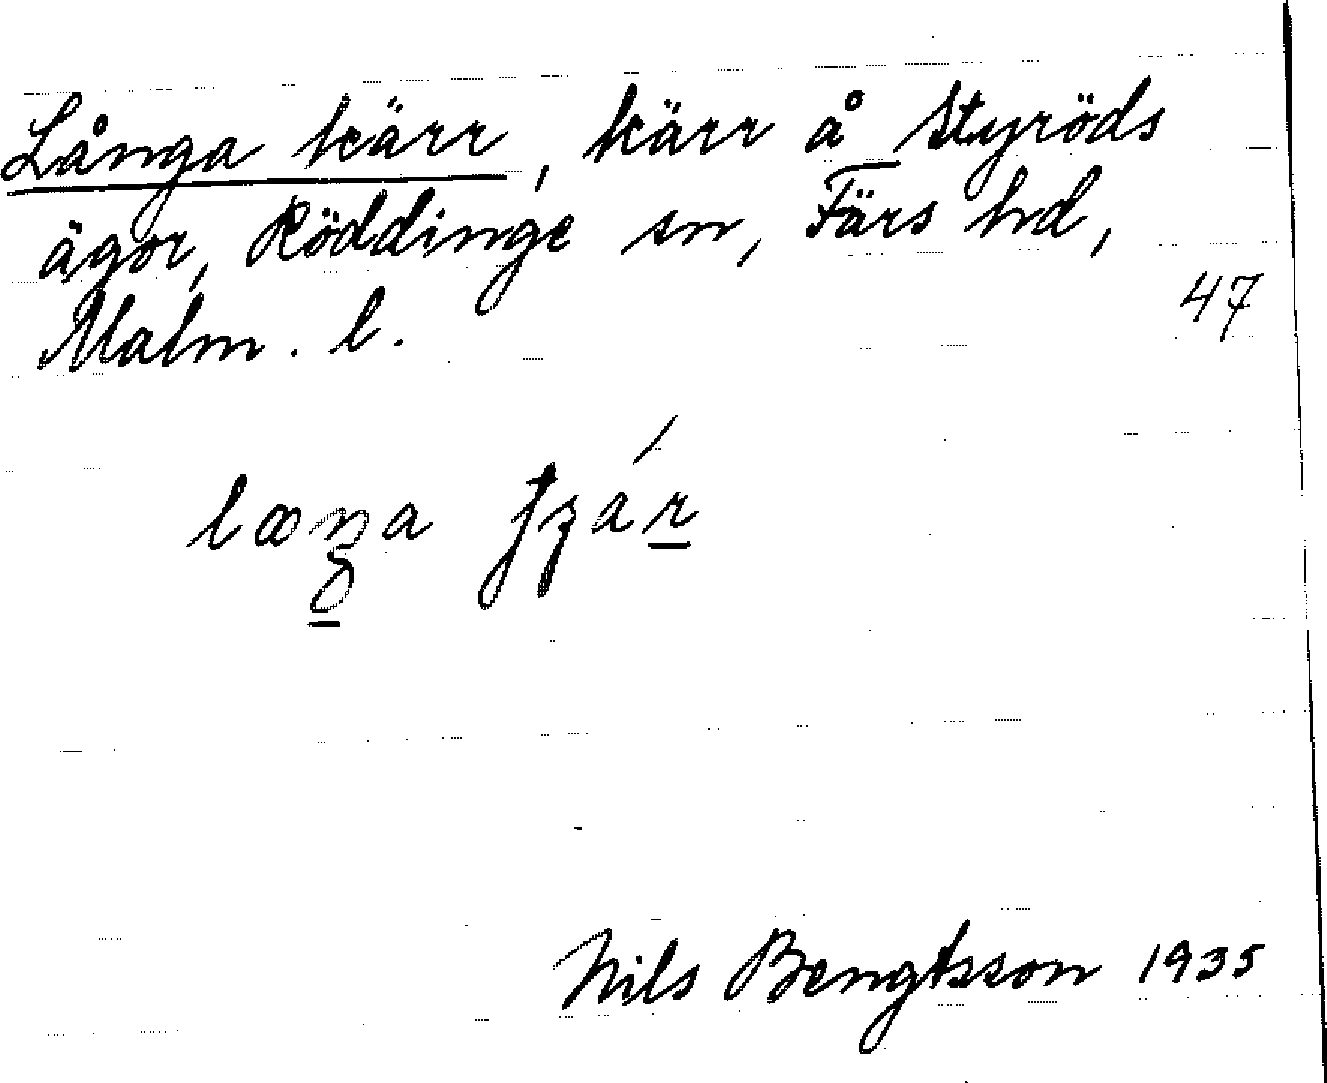 Långa kärr, kärr å Styröds
ägor, Röddinge sn, Färs hd,
Malm. l.
47
Nils Bengtsson 1935